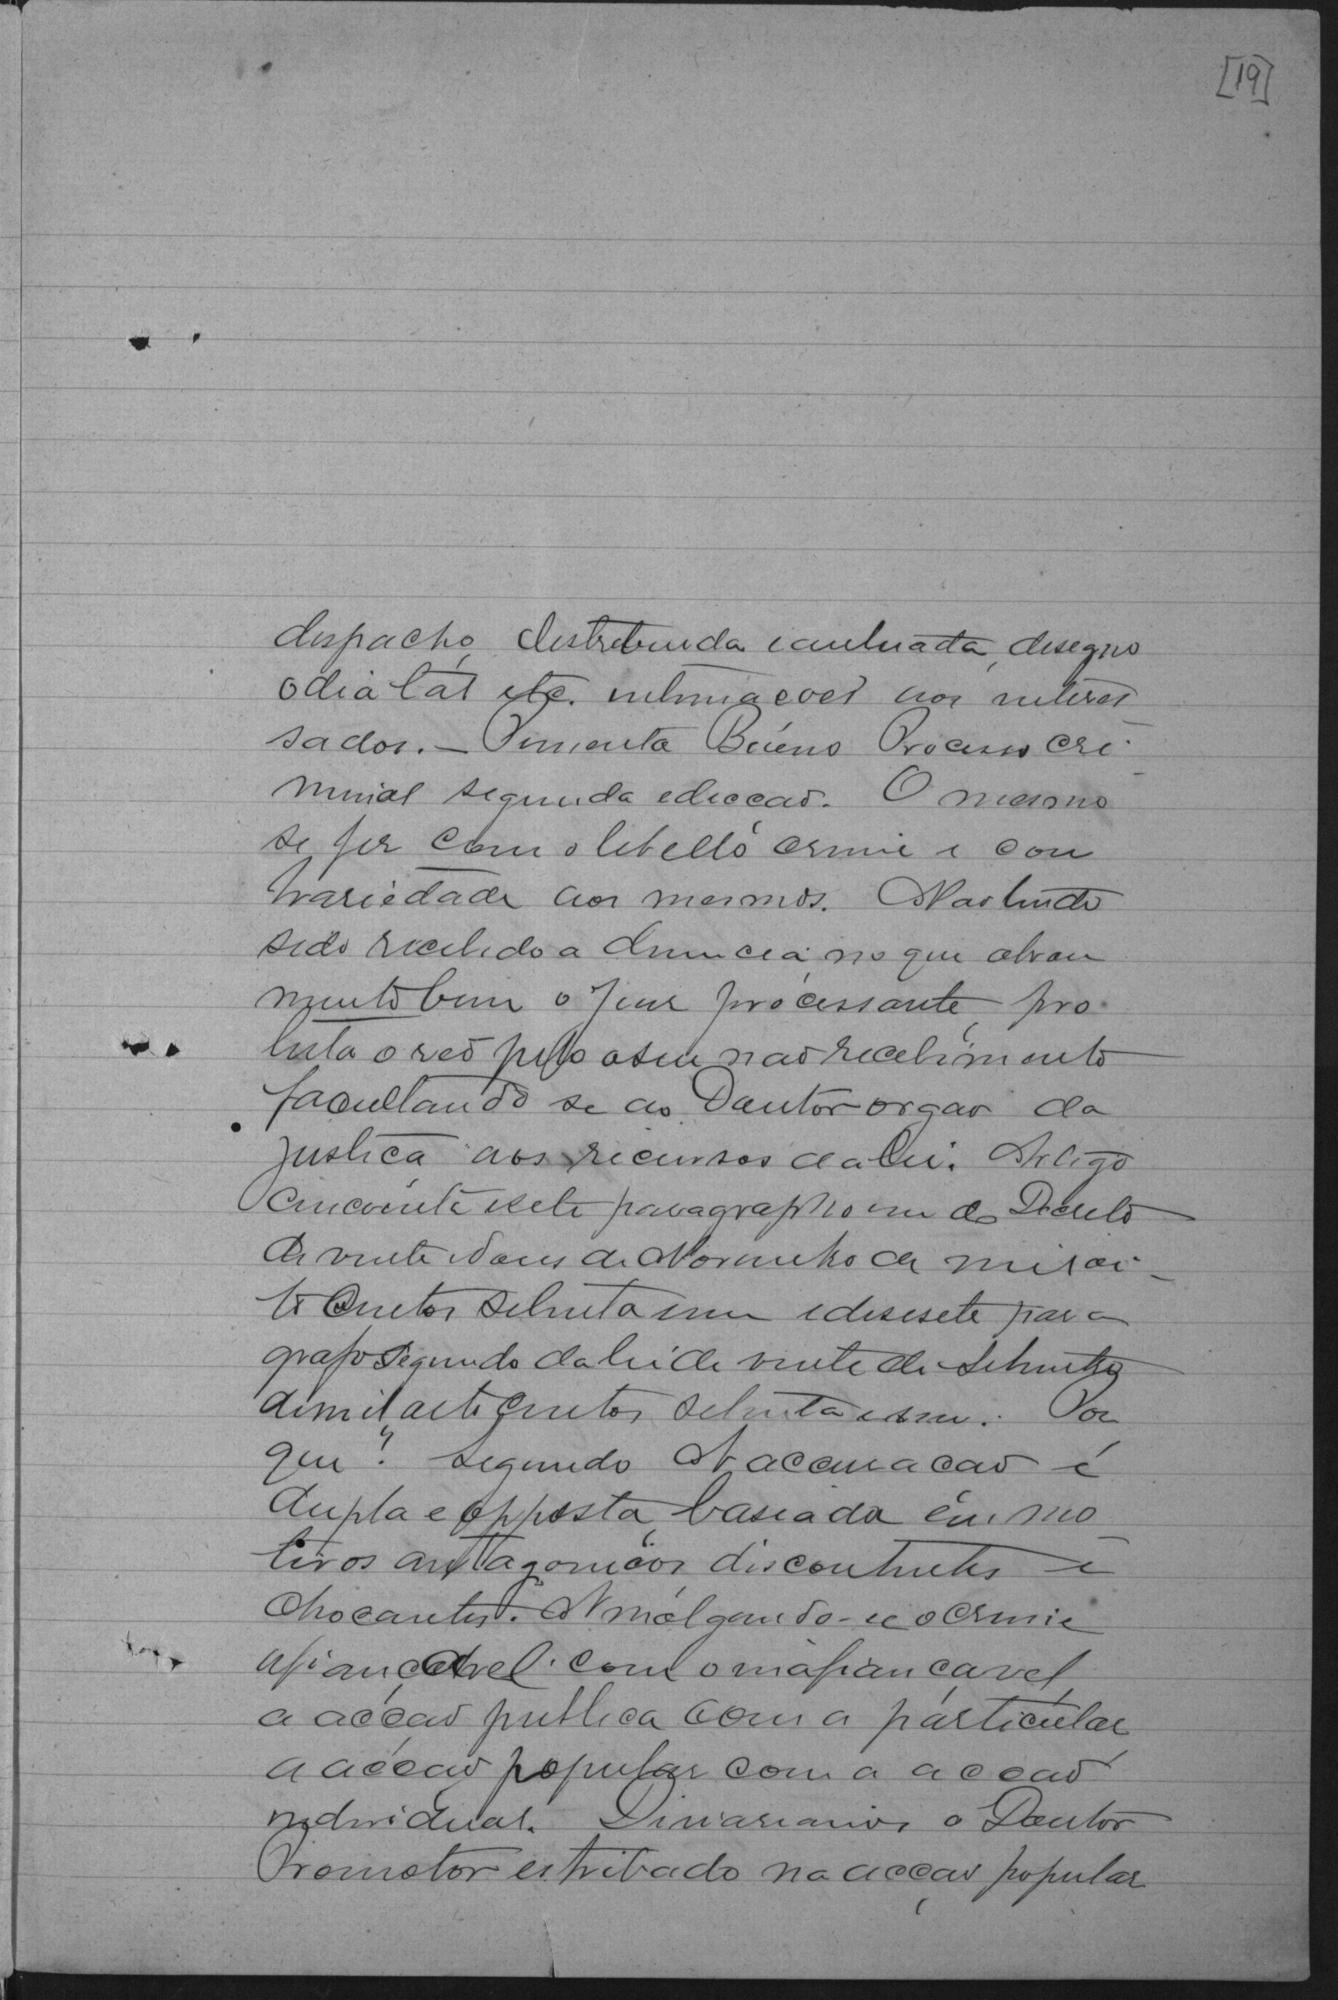 [19]
despacho, destribuida e autuada, designo
o dia tal etc. intimações aos interes
sados. — Pimenta Bueno Processo cri-
minal segunda edicção. O mesmo
se fez com o libello crime e con
trariedade aos mesmos. Não tendo
sido recebido a denuncia, no que obrou
muito bem o Juiz processante, pro-
testa o reo pelo o seu não recebimento
facultando se ao Doutor orgão da
justiça aos recursos da lei. Artigo
cincoenta e sete paragrapho um do Decreto
de vinte e dous de Novembro de mil oi-
to centos setenta e um e desesete para
grafo segundo da lei de vinte de Setembro
de mil oito centos setenta e um. Por
que? Segundo A accusação é
dupla e opposta, baseada em mo-
tivos antagonicos discontentes e
chocantes. Amalgando-se o crime
afiançavel com o inafiançavel,
a acção publica com a particular,
a acção popular com a acção
individual. Diriariamos o Doutor
Promotor estribado na acção popular